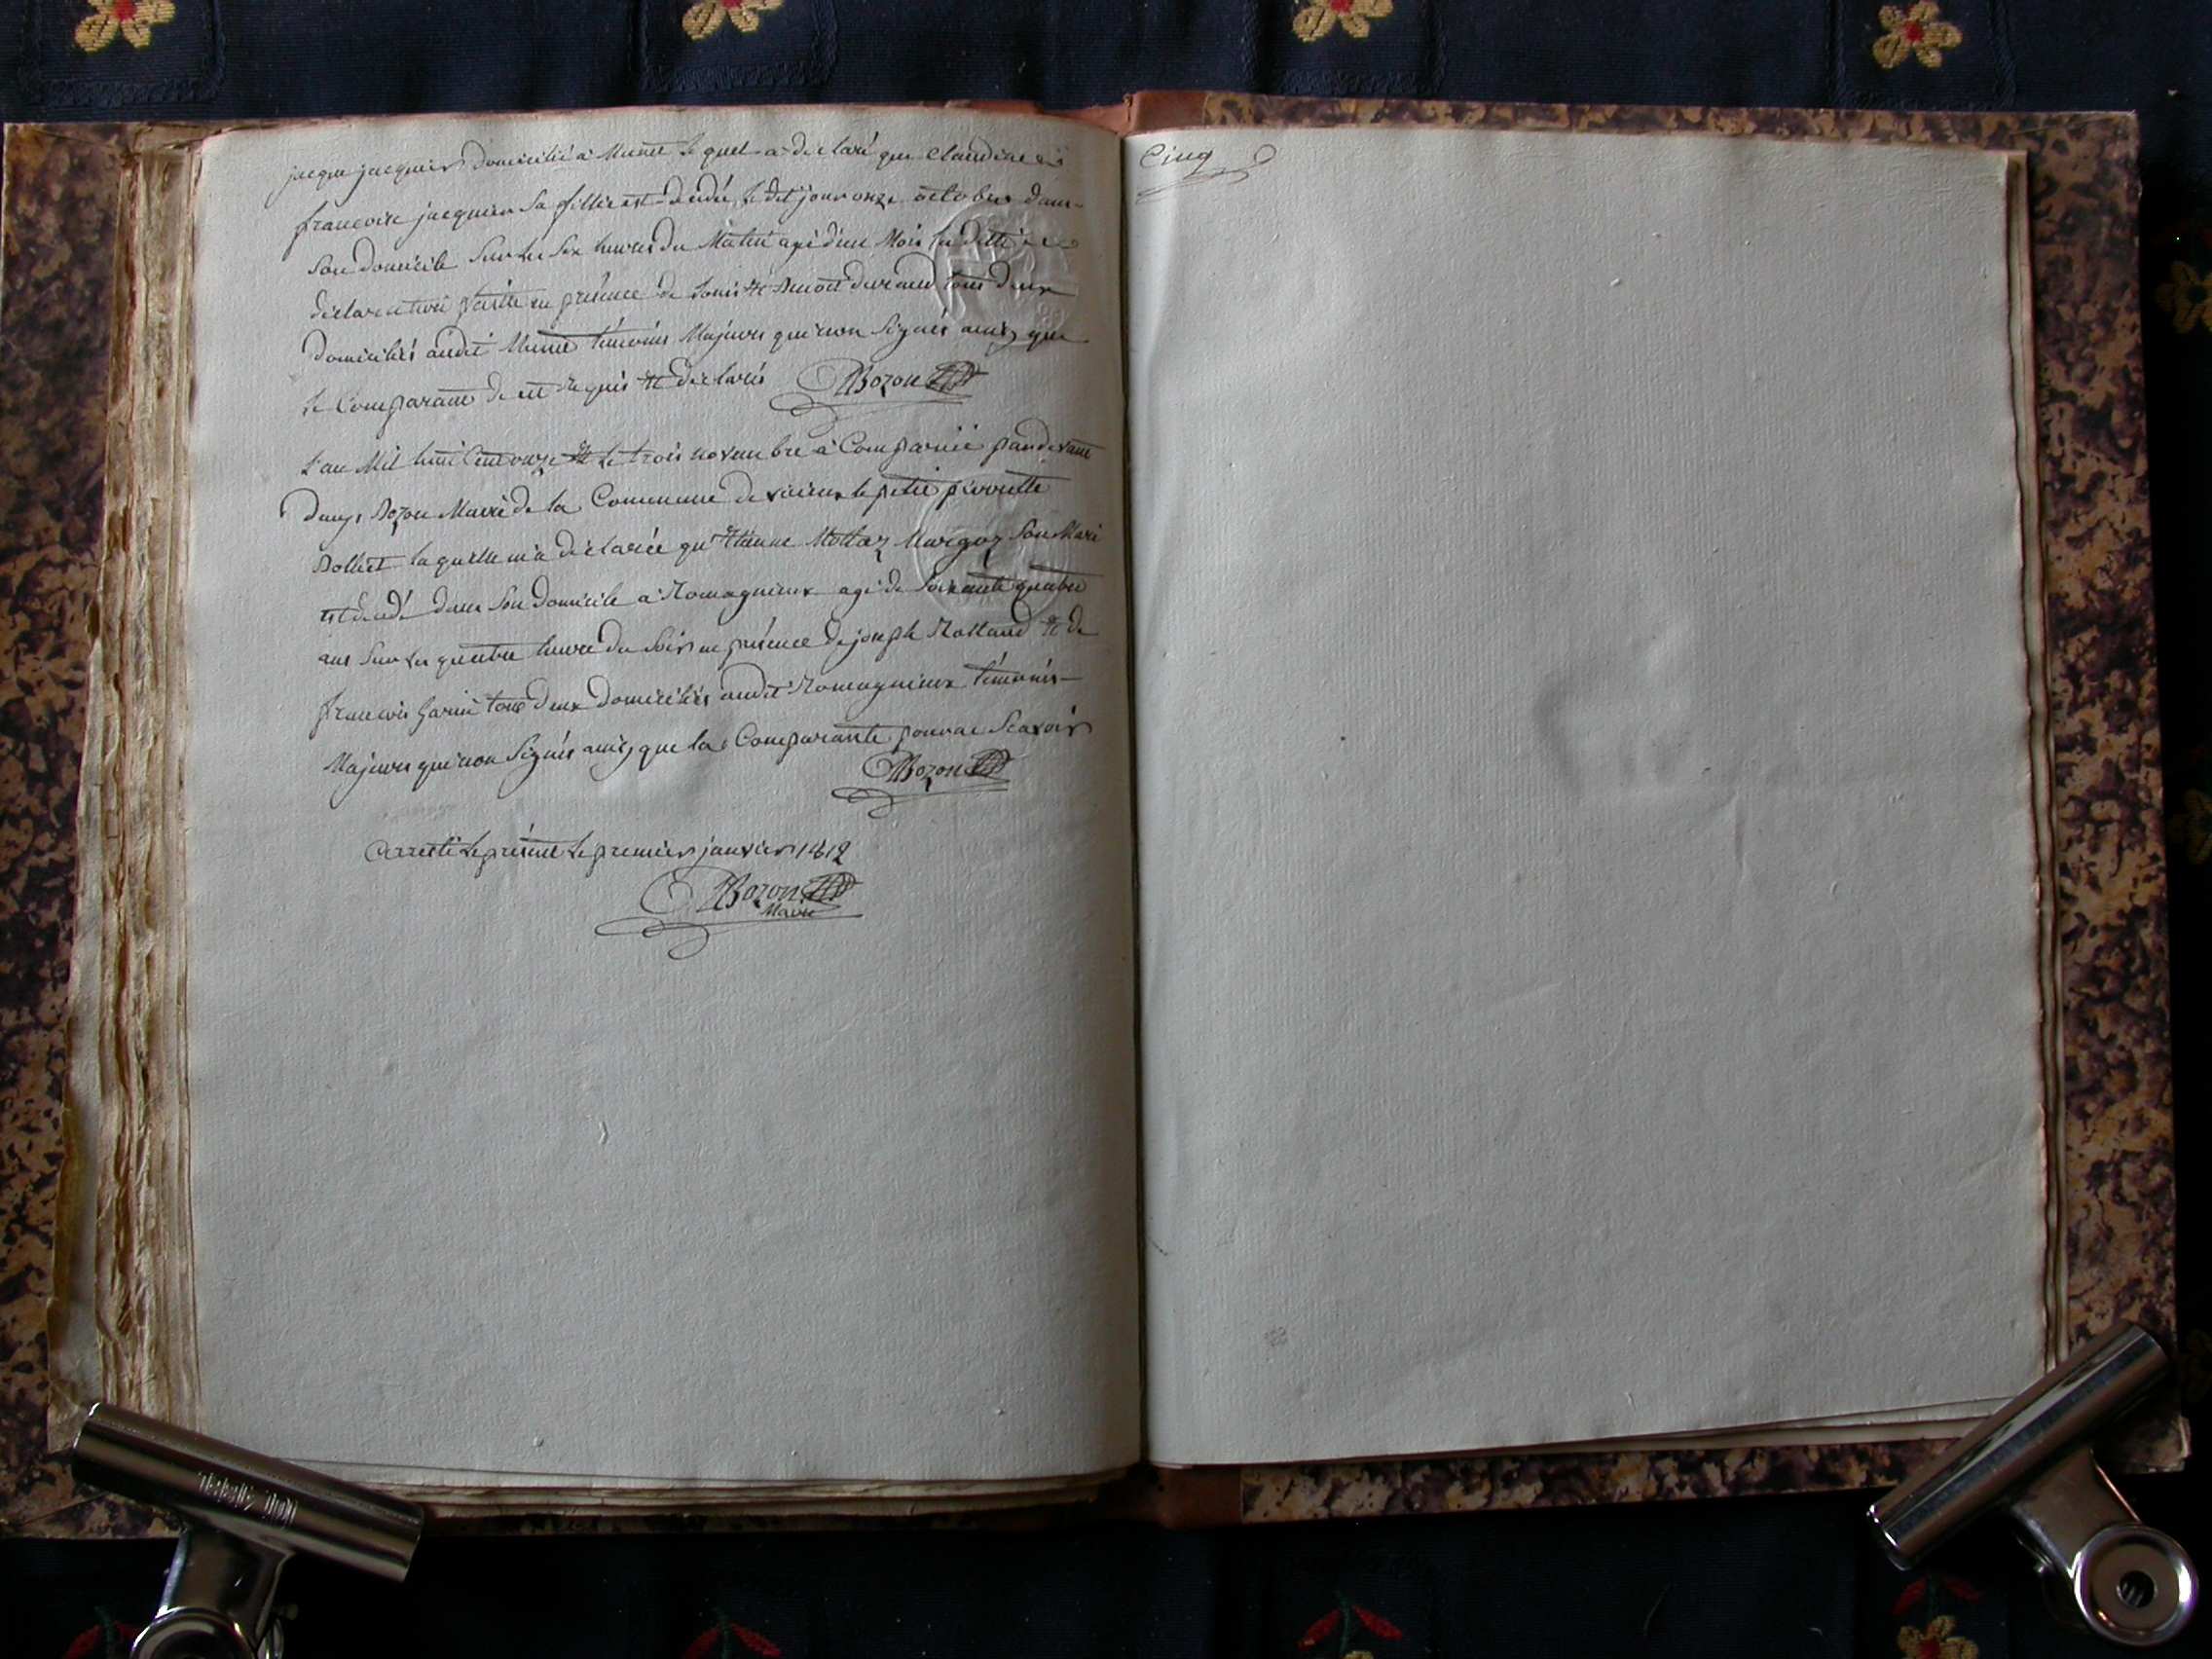 jacque jacquier Domicilié à Munet le quel a déclaré que Claudine
francoise jacquier sa fillie est décédée, le dit jour onze octobre dans
son domicile sur les six heures du Matin agé d'un Mois la ditte
déclaration faitte en présence de Louis et Benoit durand tous deux
domiciliés audit Munet témoins Majeurs qui n'on signés ainsy que
le Comparant de ce requis et déclarés Bozon
L'an Mil huit Cent onze et le trois novembre à Comparüe pardevant
Bozon Maire de la Commune de le petit pierrette
Bolliet laquelle m'a déclarée qu'Etienne Mollaz Margoz son Mari
est décédé dans son domicile a Romagnieux agé de soixante quatre
ans sur les quatre heure du soir en présence de joseph Rolland et de
francois Garin tous deux domiciliés audit Romagnieux témoins
Majeurs qui n'on signés ainsy que la Comparante pour ne scavoir
Bozon
arresté le présent le premier janvier 1812
Bozon
Maire
Cinq